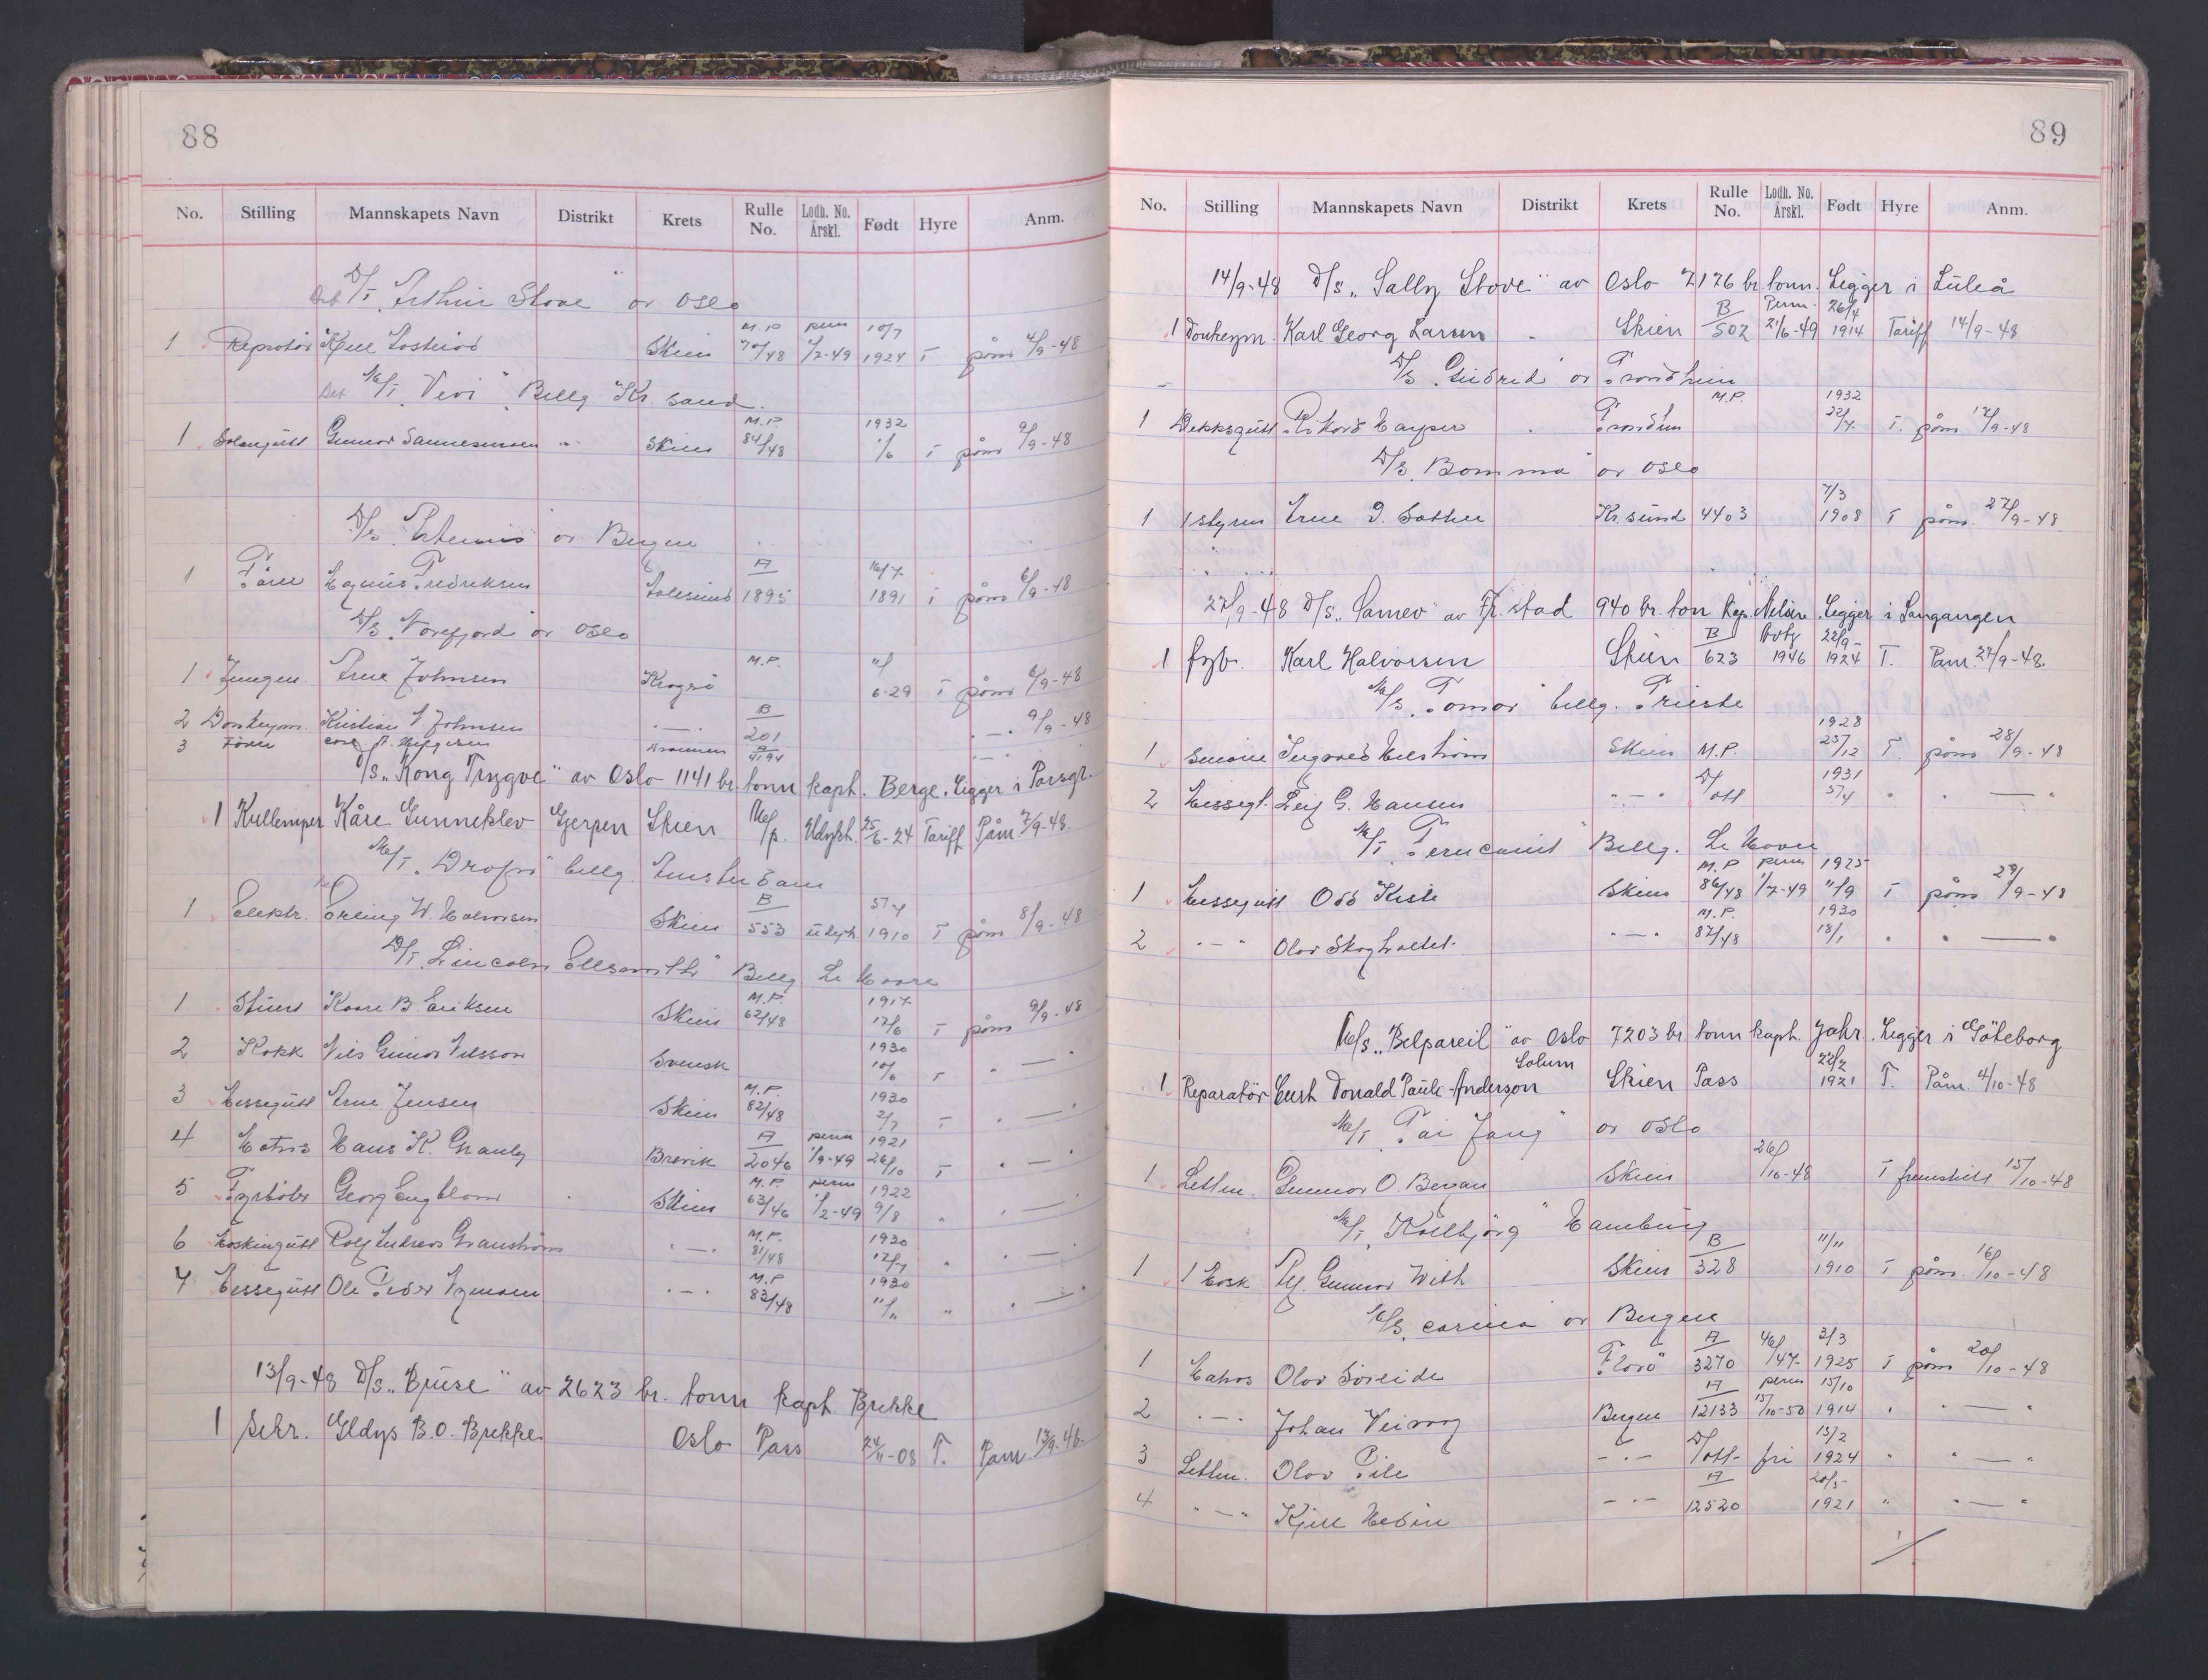 88
No. Stilling Mannskapets Navn Distrikt Krets Rulle No. Lodh. No. Årskl. Født Hyre Anm.
D/T „Arthur Stove" av Oslo
M.P perm 10/7
1 Reprotør Kjell Skien 70/48 1/2-49 1924 T påm 4/9-48
M/T „Vivi" Bellg. Kr. sand.
M.P. 1932
1 Salongutt Gunnar Sannes Skien 84/48 1/6 T påm 9/9-48
D/S „Artemis" av Bergen
A 16/7
1 Magnus Fredriksen Aalesund 1895 1891 T påm 6/9-48
D/S „Norefjord" av Oslo
M.P. 11/
1 Jungm. Arne Johnsen Kragrö 6-29 T påm 6/9-48
B
2 Donkeym. Kristian A. Johnsen — " — 201 9/9-48
3 Fören Carl A. Drammen A 4194
D/S „Kong Trygve" av Oslo 1141 br. tonn kapt. Berge. Ligger i Porsgr.
1 Kullemper Kåre Gunneklev Gjerpen Skien M/p. Udykt. 25/6-24 Tariff Påm 7/9-48.
M/T „Drafn" bellg. Amsterdam
B 5/4
1 Elektr. Erling W. Halvorsen Skien 553 udykt. 1910 T påm 8/9-48
D/T „Lincoln Ellsworth" Bellg. Le Havre
M.P. 1917
1 Stuert Kaare B. Eriksen Skien 62/48 17/6 T påm 9/9-48
1930
2 Kokk Nils Gunnar Nilsson Svensk 10/6 T " — "
M.P. 1930
3 Messegutt Arne Jensen Skien 82/48 2/7 T " — "
A perm 1921
4 Matros Hans K. Granly Brevik 2046 1/9-49 26/10 T " — "
M.P. perm 1922
5 Fyrbøter Georg Engblom Skien 63/46 1/2-49 9/8 " " — "
M.P. 1930
6 Maskingutt Rolf Andreas Granstrøm " — " 81/48 17/7 " " — "
M.P 1930
7 Messegutt Ole Peder Nyman " — " 83/48 11/11 " " — "
13/9-48 D/S „Bjuse" av 2623 br. tonn kapt. Brekke
1 Sekr. Gldys B.O. Brekke. Oslo Pass 24/11-08 T. Påm 13/9-48.
89
No. Stilling Mannskapets Navn Distrikt Krets Rulle No. Lodh. No. Årskl. Født Hyre Anm.
14/9-48 D/S „Sally Stove" av Oslo 7176 br tonn. Ligger i Luleå
B Perm. 26/4
1 Donkeym. Karl Georg Larsen " Skien 502 21/6-49 1914 Tariff 14/9-48
D/S „Gudrid" av Trondheim
M.P. 1932
1 Dekksgutt Rikard Harper " 22/7 T. påm 17/9-48
D/S „Bomma" av Oslo
7/3
1 1 styrm Arne I. Sather Kr. sund 4403 1908 T påm. 27/9-48
27/9-48 D/S „Samev" av Fr. stad 940 br. ton Kap. Nilsen. Ligger i Langangen
B 22/9-
1 fyb. Karl Halvorsen Skien 623 1946 1924 T. Påm. 27/9-48.
M/S „Tomar" bellg. Trieste
1928
1 Ingvald Skien M.P. 25/12 T. påm 28/9-48
D/ 1931
2 Messegt. Leif G. Hansen " — " att 5/4 " " — "
M/T „Bellg. Le Havre
M.P perm 1925
1 Messegutt Odd Kise Skien 86/48 1/7-49 11/9 T påm 29/9-48
M.P. 1930
2 " — " Olav Skogholtet. " — " 87/48 18/1 " " — "
M/S „Belpareil" av Oslo 7203 br. tonn kapt. Jahr. Ligger i Göteborg
Solum 22/2
1 Reparatör Curt Donald Paule-Anderson Skien Pass 1921 T. Påm. 4/10-48
M/T „Tai Yang" av Oslo
26/
1 Lettm. Gunnar O. Bergan Skien /10-48 T fremstilt 15/10-48
M/T „Kollbjörg" Hamburg
B 11/11
1 1 Mask Gunnar With Skien 328 1910 T påm. 16/10-48
M/S „Carina" av Bergen
A 46/ 3/3
1 Matros Olav Søreide Florö 3270 /47- 1925 T påm 20/10-48
A perm 15/10
2 " — " Johan Bergen 12133 15/10-50 1914 " " — "
D/ 13/2
3 Lettm. Olav Pile " — " att- fri 1924 " " — "
A 20/5-
4 " — " Kjell " — " 12520 1921 " " — "